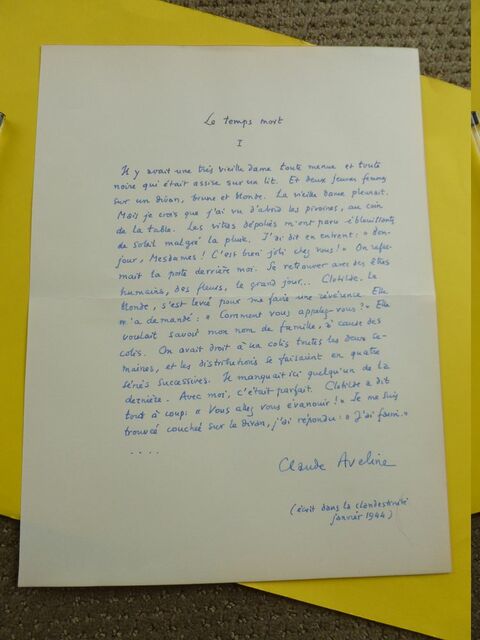 Le temps mort
I
Il y avait une très vieille dame toute menue et toute
noire qui était assise sur un lit. Et deux jeunes femmes
sur un divan, brune et blonde. La vieille dame pleurait.
Mais je crois que j'ai vu d'abord les pivoines, au coin
de la table. Les vitres dépolies m'ont paru éblouissantes
de soleil malgré la pluie. J'ai dit en entrant : « Bon-
jour, Mesdames ! C'est bien joli chez vous ! » On refer-
mait la porte derrière moi. Se retrouver avec des êtres
humains, des fleurs, le grand jour... Clotilde, la
blonde, s'est levée pour me faire une révérence. Elle
m'a demandé : « Comment vous appelez-vous ? » Elle
voulait savoir mon nom de famille, à cause des
colis. On avait droit à un colis toutes les deux se-
maines, et les distributions se faisaient en quatre
séries successives. Il manquait ici quelqu'un de la
dernière. Avec moi, c'était parfait. Clotilde a dit
tout à coup : « Vous allez vous évanouir ! » Je me suis
trouvé couché sur le divan, j'ai répondu : « J'ai faim. »
. . . .
Claude Aveline
(écrit dans la clandestinité
janvier 1944)